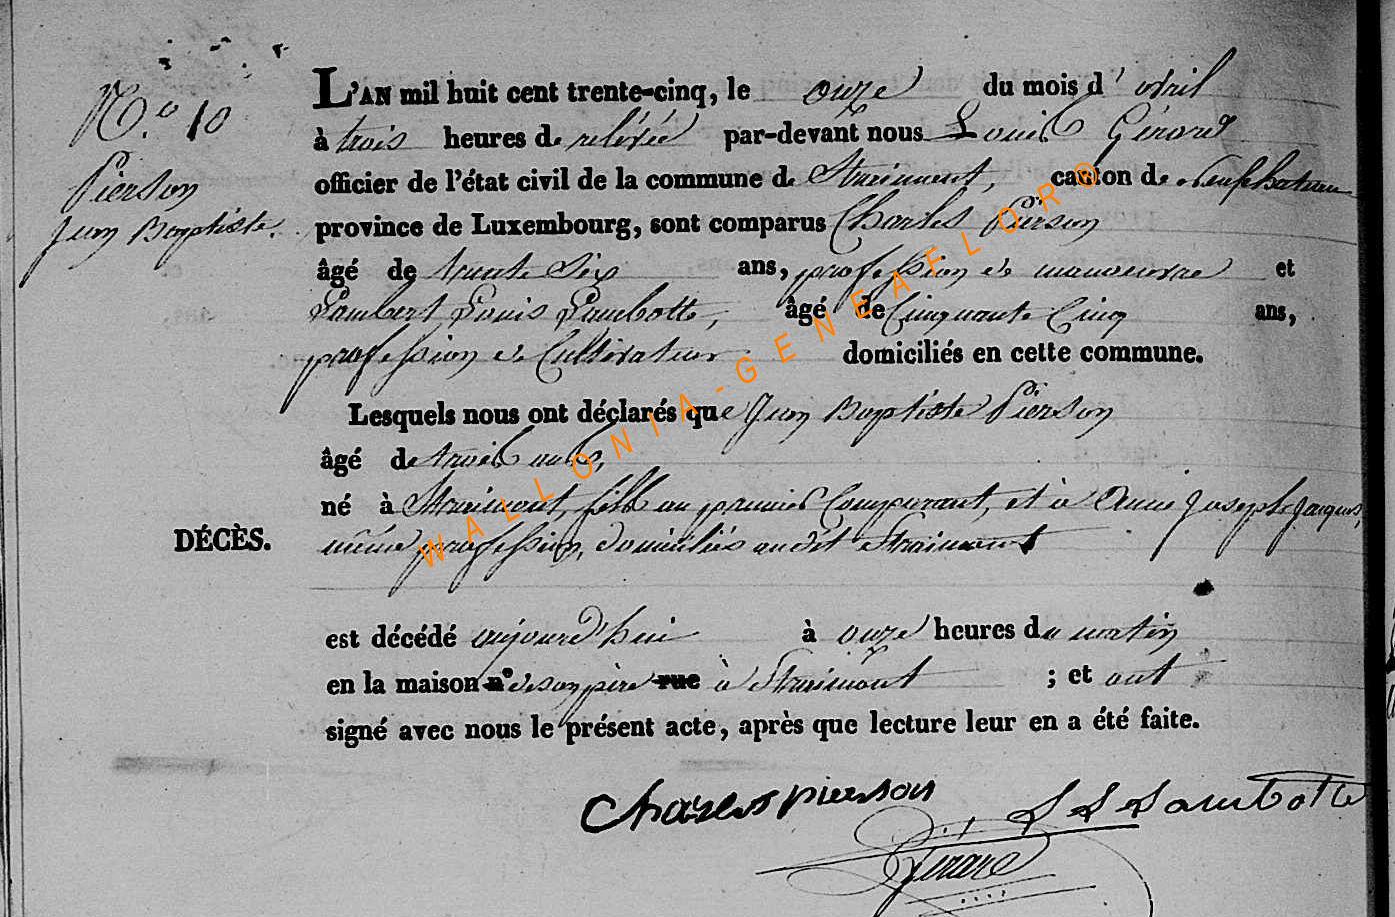 N.o 10
Pierson
Jean Baptiste.
L'AN mil huit cent trente-cinq, le onze du mois d'avril
à trois heures de relevée par-devant nous Louis Gérard
officier de l'état civil de la commune de Straimont, canton de Neufchateau
province de Luxembourg, sont comparus Charles Pierson
âgé de trente six ans, profession de manoeuvre et
Lambert Louis Lambotte, âgé de Cinquante Cinq ans,
profession de Cultivateur domiciliés en cette commune.
Lesquels nous ont déclarés que Jean Baptiste Pierson
âgé de trois ans,
né à Straimont, fils au premier Comparant, et à Anne Joseph Jacques,
DÉCÈS.
même profession, domiciliés audit Straimont
est décédé aujourd'hui à onze heures du matin
en la maison n° de son père rue à Straimont ; et ont
signé avec nous le présent acte, après que lecture leur en a été faite.
Charles pierson
L L Lambotte
Gérard
WALLONIA-GENEAFLOR©